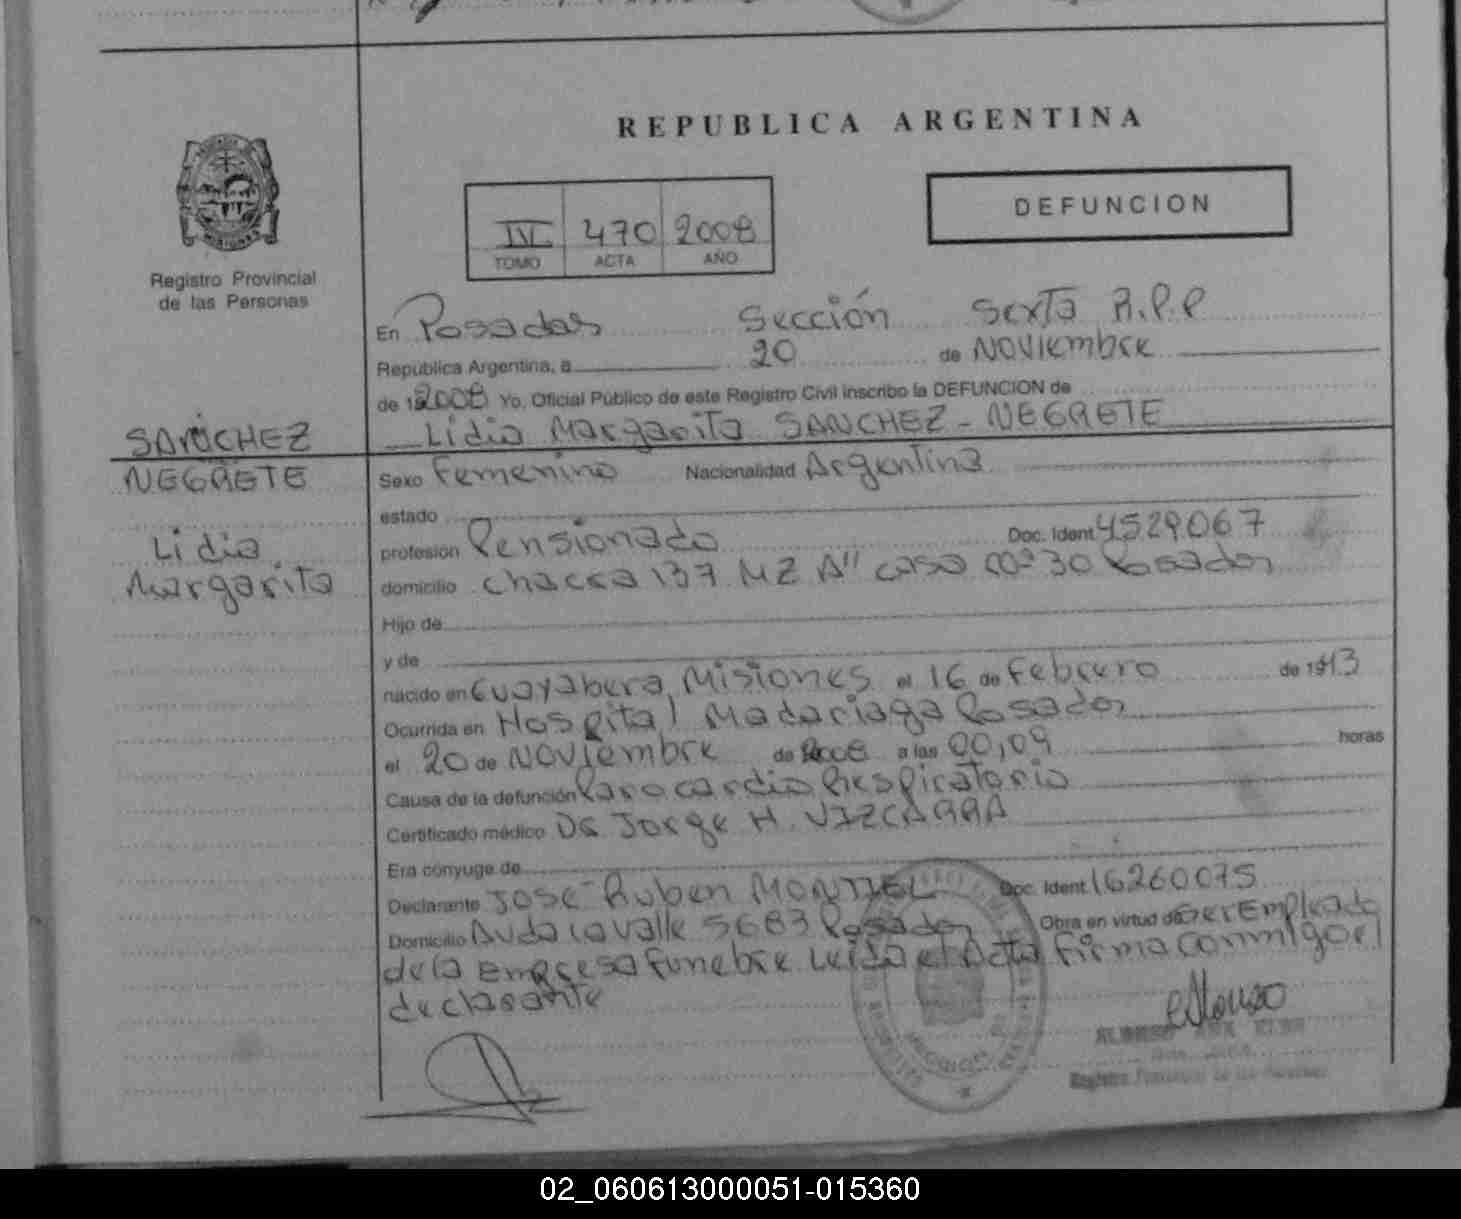 REPUBLICA ARGENTINA
DEFUNCION
IV 470 2008
TOMO ACTA AÑO
Registro Provincial
de las Personas
MISIONES
En Posadas Sección Sexta R.P.P
República Argentina, a 20 de Noviembre
de 2008 Yo, Oficial Público de este Registro Civil inscribo la DEFUNCION de
Lidia Margarita SANCHEZ - NEGRETE
SANCHEZ
NEGRETE
Lidia
Margarita
Sexo Femenino Nacionalidad Argentina
estado
profesión Pensionado Doc. Ident 4529067
domicilio chacra 137 MZ A" casa nº 30 Posadas
Hijo de
y de
nacido en Guayabera Misiones el 16 de Febrero de 1943
Ocurrida en Hospital Madariaga Posadas
el 20 de Noviembre de 2008 a las 00,09 horas
Causa de la defunción Paro cardio Respiratorio
Certificado médico Dr Jorge H. VIZCARRA
Era cónyuge de
Declarante José Ruben MONTIEL Doc. Ident 16260075
Domicilio Avda Lavalle 5683 Posadas Obra en virtud de Ser Empleado
de la Empresa Funebre Leida el Acta Firma conmigo el
declarante
Registro Provincial de las Personas
02_060613000051-015360